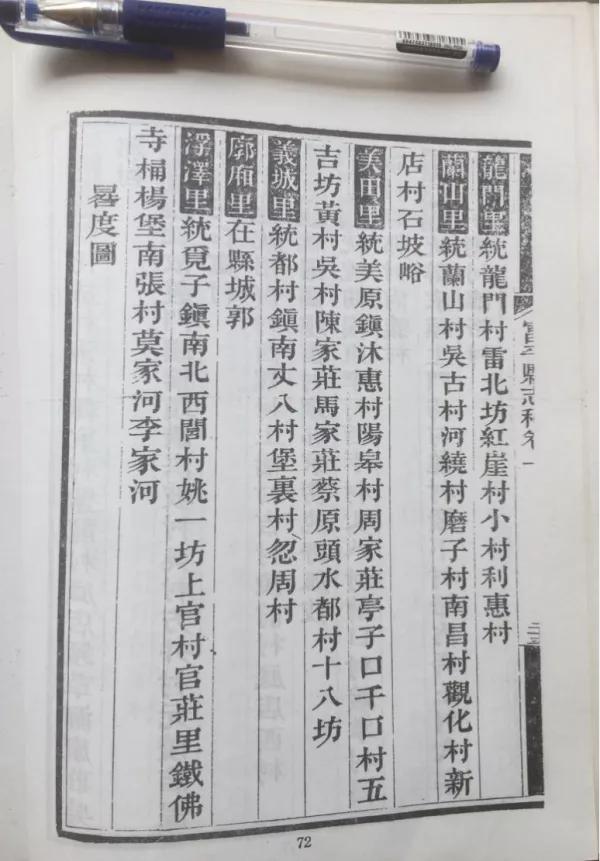 富平縣志稿卷一
龍門里統龍門村雷北坊紅崖村小村利惠村
蘭山里統蘭山村吳古村河繞村磨子村南昌村觀化村新
店村石坡峪
美田里統美原鎭沐惠村陽皋村周家莊亭子口千口村五
吉坊黃村吳村陳家莊馬家莊蔡原頭水都村十八坊
義城里統都村鎭南丈八村堡裏村忽周村
廓廂里在縣城郭
浮澤里統覓子鎭南北西閭村姚一坊上官村官莊里鐵佛
寺桶楊堡南張村莫家河李家河
晷度圖
72